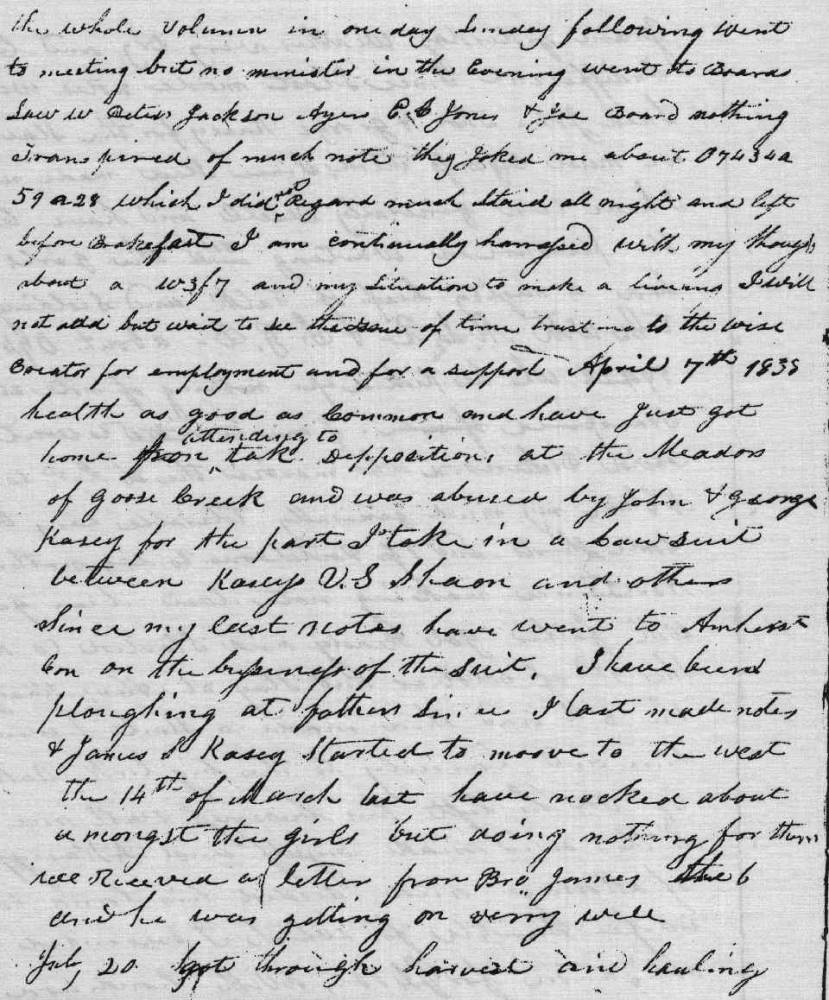 the whole volumn in one day Sunday following went
to meeting but no minister in the Evening went to Boards
Saw W Peters Jackson Ayers C Jones & Joe Board nothing
Transpired of much note they Joked me about 07434a
59a28 which I did not Regard much Staid all night and left
before Brakefast I am continually harrassed with my though
about a w3f7 and my Situation to make a liveing I will
not add but wait to see the issue of time trust to the wise
Creator for employment and for a support April 7th 1838
health as good as Common and have Just got
home from attending to tak Deppositions at the Meadors
of goose Creek and was abused by John & george
Kasey for the part I take in a Lawsuit
between Kaseys V.S Shaon and others
Since my last notes have went to Amherst
Con on the bussiness of the suit. I have been
ploughing at fathers Since I last made notes
& James S Kasey Started to moove to the west
the 14th of March last have nocked about
amongst the girls but doing nothing for them
we Received a letter from Bro James the 6
and he was getting on verry well
July 20 got through harvest and hauling